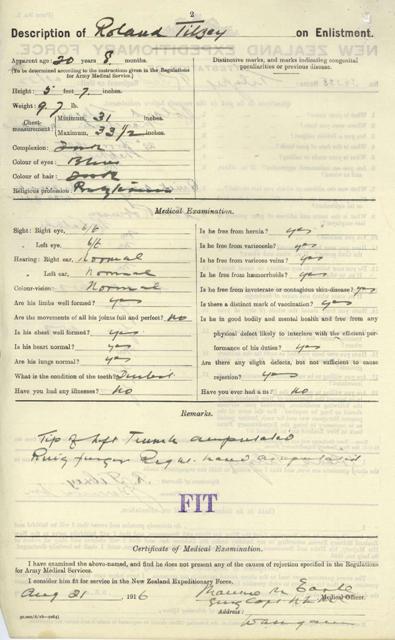 2
Description of Roland Tilsey on Enlistment.
Apparent age: 20 years 8 months.
(To be determined according to the instructions given in the Regulations for Army Medical Service.)
Distinctive marks, and marks indicating congenital peculiarities or previous disease.
Height: 5 feet 7 inches.
Weight: 9.7 lb.
Chest-measurement Minimum, 31 inches.
Maximum, 33 1/2 inches.
Complexion: Dark
Colour of eyes: Blue
Colour of hair: Dark
Religious profession:
Medical Examination.
Sight: Right eye, 6/6
" Left eye, 6/6
Hearing: Right ear, Normal
" Left ear, Normal
Colour-vision: Normal
Are his limbs well formed? yes
Are the movements of all his joints full and perfect? No
Is his chest well formed? yes
Is his heart normal? yes
Are his lungs normal? yes
What is the condition of the teeth?
Have you had any illnesses? No
Is he free from hernia? yes
Is he free from varicocele? yes
Is he free from varicose veins? yes
Is he free from hæmorrhoids? yes
Is he free from inveterate or contagious skin-disease? yes
Is there a distinct mark of vaccination? yes
Is he in good bodily and mental health and free from any physical defect likely to interfere with the efficient performance of his duties? yes
Are there any slight defects, but not sufficient to cause rejection? yes
Have you ever had a fit? No
Remarks.
Tip of left Thumb amputated
Ring finger Right hand amputated
FIT
Certificate of Medical Examination.
I have examined the above-named, and find he does not present any of the causes of rejection specified in the Regulations for Army Medical Services.
I consider him fit for service in the New Zealand Expeditionary Force.
Aug 31 1916
Medical Officer.
Address: